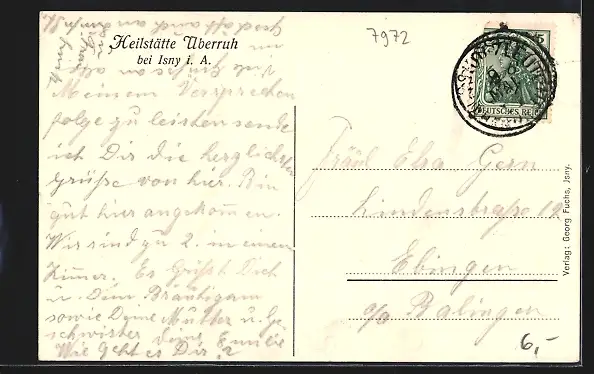 Heilstätte Überruh
bei Isny i. A.
7972
DEUTSCHES REICH
Meinem Versprechen
folge zu leisten sende
ich Dir die herzlichsten
Grüße von hier. Bin
gut hier angekommen.
Wir sind zu 2. in einem
Zimmer. Es Grüßt Dich
u. Dein Bräutigam
sowie Deine Mutter u. Ge
schwister deine Emilie
Wie geht es Dir?
Fräul Elsa Gern
Lindenstraße 12
Ebingen
a/o Balingen
Verlag: Georg Fuchs, Jsny.
6,-